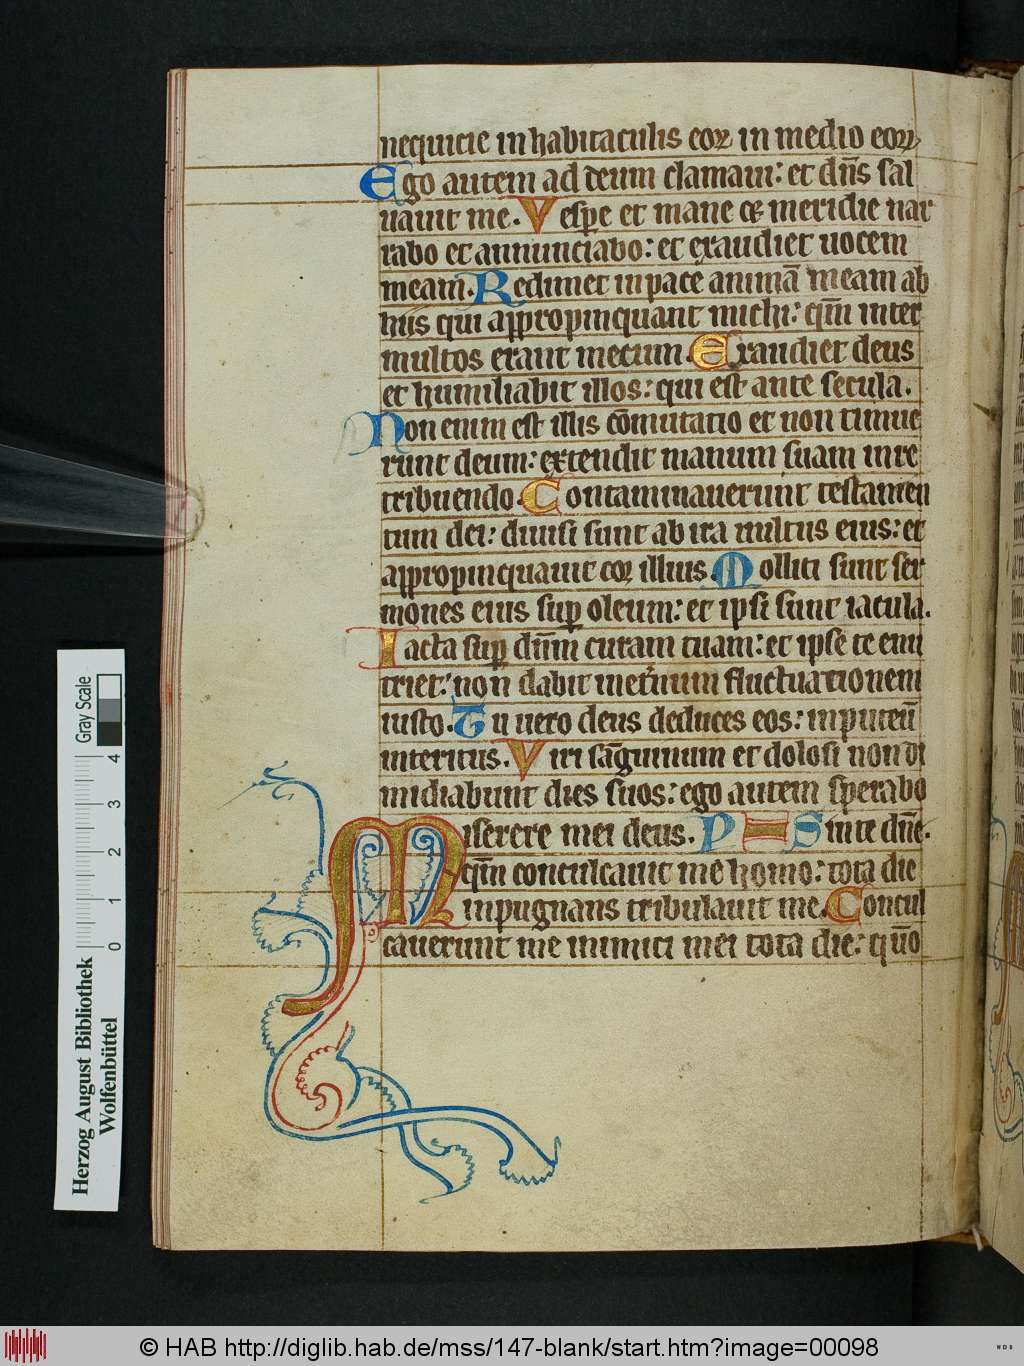 nequicie in habitaculis eoꝝ in medio eoꝝ
Ego autem ad deum clamaui: et dn̄s sal
uauit me. Vesꝑe et mane et meridie nar
rabo et annunciabo: et exaudiet uocem
meam. Redimet in pace animā meam ab
hiis qui appropinquant michi: qm̄ inter
multos erant mecum. Exaudiet deus
et humiliabit illos: qui est ante secula.
Non enim est illis cōmutatio et non timue
runt deum: extendit manum suam in re
tribuendo. Contaminauerunt testamen
tum dei: diuisi sunt ab ira uultus eius: et
appropinquauit cor illius. Molliti sunt ser
mones eius suꝑ oleum: et ipsi sunt iacula.
Iacta suꝑ dn̄m curam tuam: et ipse te enu
triet: non dabit in et̾num fluctuationem
iusto. Tu uero deus deduces eos: in puteū
interitus. Viri sāguinum et dolosi non di
midiabunt dies suos: ego autem sperabo
Miserere mei deus. PS in te dn̄e.
qm̄ conculcauit me homo: tota die
inpugnans tribulauit me. Concul
cauerunt me inimici mei tota die: qūo
Herzog August Bibliothek
Wolfenbüttel
0 1 2 3 4
Gray Scale
© HAB http://diglib.hab.de/mss/147-blank/start.htm?image=00098